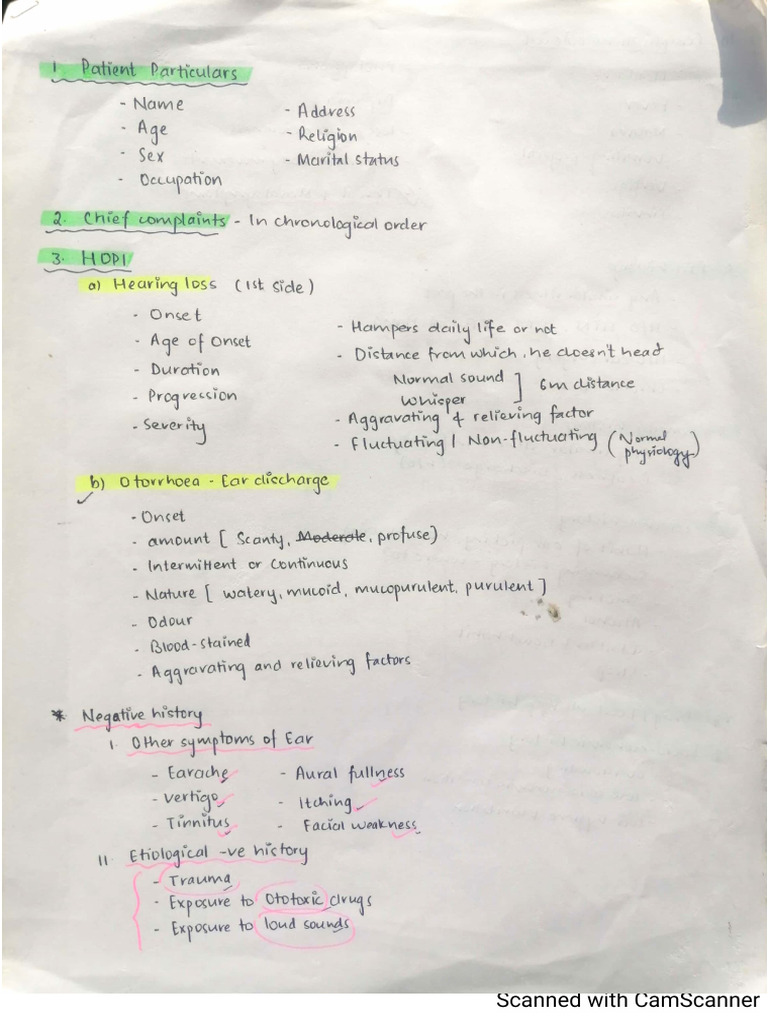 1. Patient Particulars
- Name
- Age
- Sex
- Occupation
- Address
- Religion
- Marital status
2. Chief complaints - In chronological order
3. HOPI
a) Hearing loss (1st side)
- Onset
- Age of Onset
- Duration
- Progression
- Severity
- Hampers daily life or not
- Distance from which, he doesn't head
Normal sound
Whisper ] 6m distance
- Aggravating & relieving factor
- Fluctuating / Non-fluctuating (Normal physiology)
b) Otorrhoea - Ear discharge
- Onset
- amount [ Scanty, Moderate, profuse)
- Intermittent or Continuous
- Nature [ watery, mucoid, mucopurulent, purulent ]
- Odour
- Blood-stained
- Aggravating and relieving factors
* Negative history
I. Other symptoms of Ear
- Earache
- Vertigo
- Tinnitus
- Aural fullness
- Itching
- Facial weakness
II. Etiological -ve history
- Trauma
- Exposure to Ototoxic drugs
- Exposure to loud sounds
Scanned with CamScanner